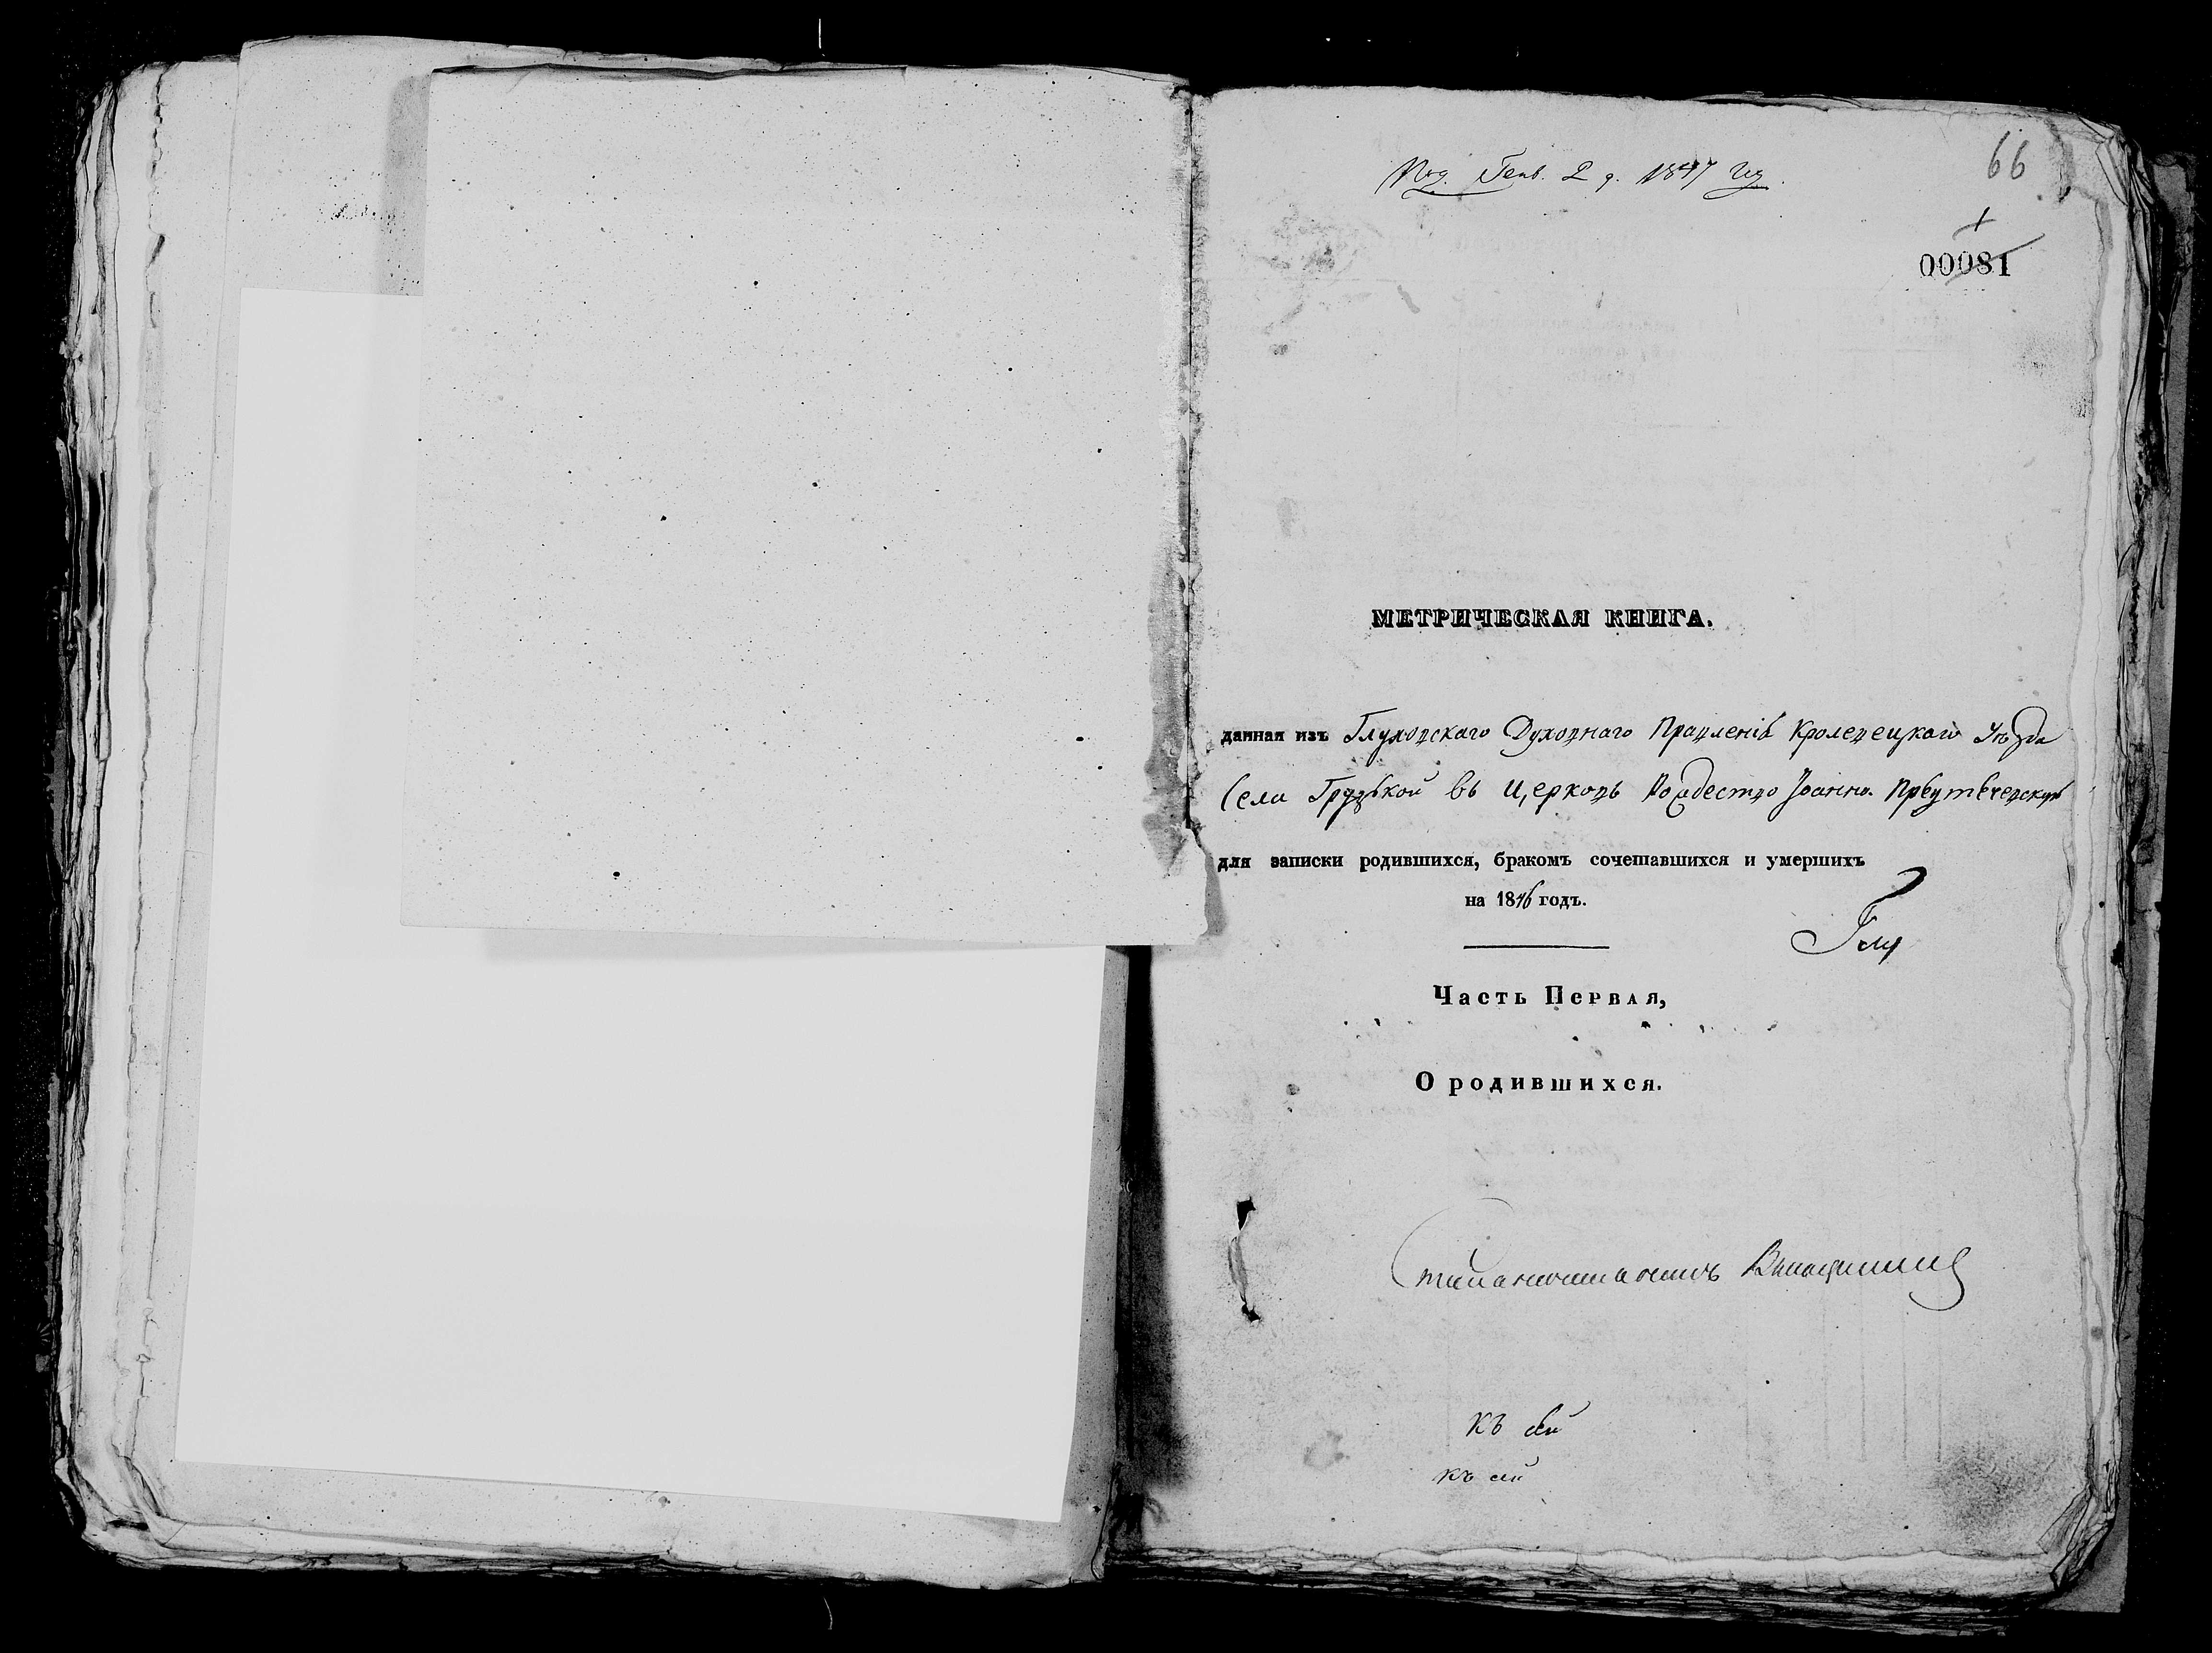 66
Под. Генв. 2 д. 1847 год.
00081
МЕТРИЧЕСКАЯ КНИГА.
данная изъ Глуховскаго Духовнаго Правленія Кролевецкаго Уѣзда
Села Грузькой въ Церковь Рождество Іоанно Предтечевскую
для записки родившихся, бракомъ сочетавшихся и умершихъ
на 1846 годъ.
Глу
Часть Первая,
О родившихся.
къ сей
къ сей